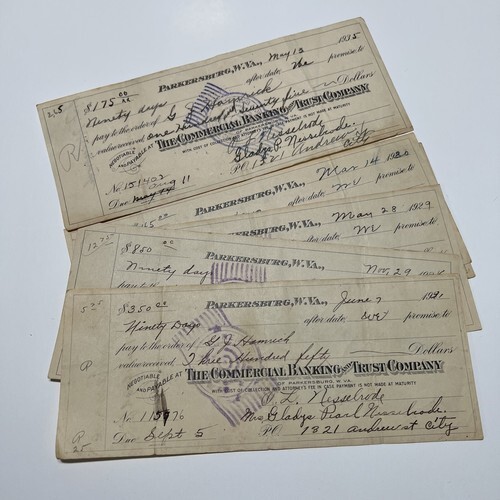 PARKERSBURG, W. VA., May 13 1935
$175 00
Ninety days after date, We promise to
pay to the order of G
value received One Hundred Seventy five Dollars
NEGOTIABLE AND PAYABLE AT THE COMMERCIAL BANKING AND TRUST COMPANY
OF PARKERSBURG, W. VA.
WITH COST OF COLLECTION AND ATTORNEY'S FEE IN CASE PAYMENT IS NOT MADE AT MATURITY
R
Nisselrode
No. 151402 Gladys P. Nisselrode.
Due Aug 11 P.O. 1321 Andrew St
City
PARKERSBURG, W. VA., Mar 14 1930
after date, We promise to
PARKERSBURG, W. VA., May 28 1929
We promise to
PARKERSBURG, W. VA., Nov. 29
$850 00
Ninety day
5.25
PARKERSBURG, W. VA., June 7 1931
$350 00
Ninety Days after date, We promise to
pay to the order of G J Hamrick
value received Three Hundred fifty Dollars
NEGOTIABLE AND PAYABLE AT THE COMMERCIAL BANKING AND TRUST COMPANY
OF PARKERSBURG, W. VA.
WITH COST OF COLLECTION AND ATTORNEY'S FEE IN CASE PAYMENT IS NOT MADE AT MATURITY
R
P. L. Nisselrode
No. 115976 Mrs Gladys Pearl Nisselrode.
Due Sept 5 P.O. 1321 Andrew st City